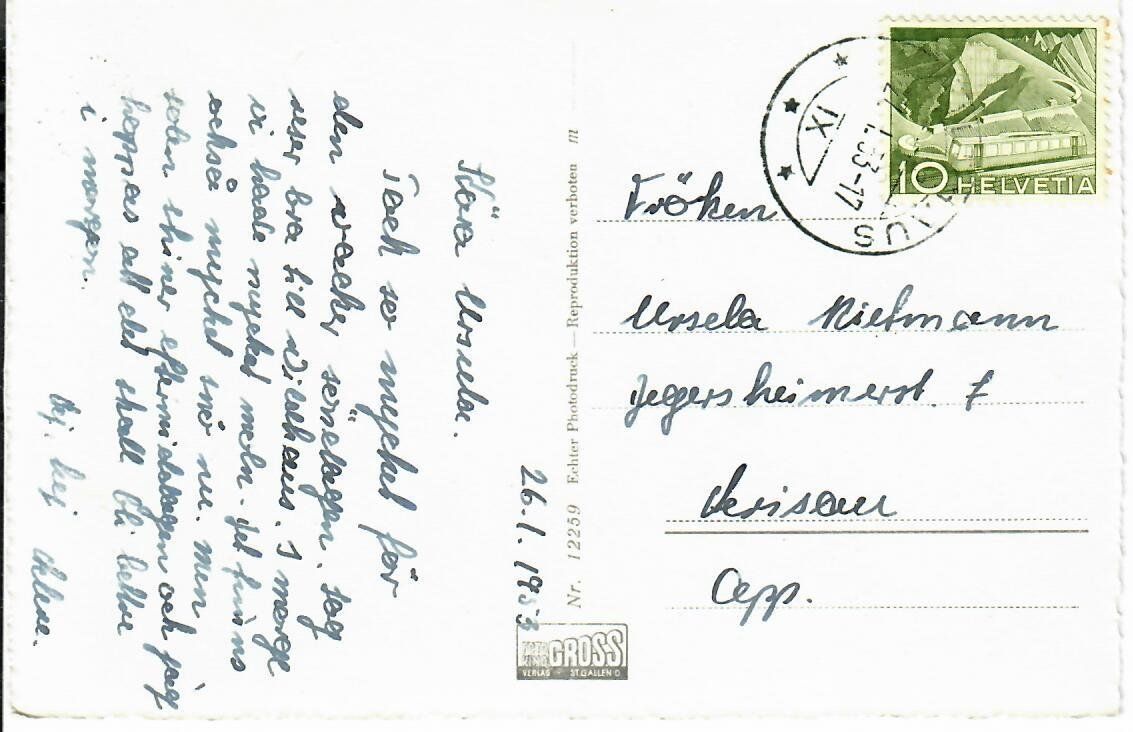 26.1.1953
Kära Ursula.
Tack so mycket för
den vacker söndagen. Jag
reser bra till Wildhaus. I morge
vi hade mycket moln. Det finns
ochså mycket snö nu. Men
solen skiner eftermiddagen och jag
hoppas att det skall bli bettre
i morgon.
Hej. hej
Nr. 12259 Echter Photodruck — Reproduktion verboten m
GROSS
VERLAG ST.GALLEN O
10 HELVETIA
IX
53-17
AUS
Fröken
Ursula Riefmann
Degersheimerst. 7
Herisau
App.